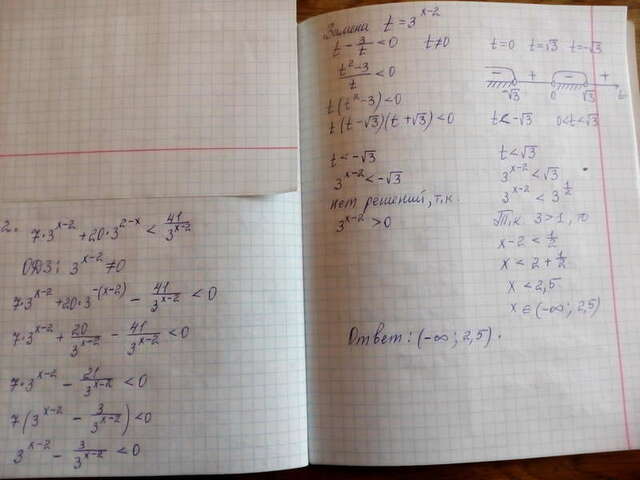 2. 7·3^(x-2) + 20·3^(2-x) < 41/3^(x-2)
ОДЗ: 3^(x-2) ≠ 0
7·3^(x-2) + 20·3^(-(x-2)) - 41/3^(x-2) < 0
7·3^(x-2) + 20/3^(x-2) - 41/3^(x-2) < 0
7·3^(x-2) - 21/3^(x-2) < 0
7(3^(x-2) - 3/3^(x-2)) < 0
3^(x-2) - 3/3^(x-2) < 0
Замена t = 3^(x-2)
t - 3/t < 0 t ≠ 0
(t²-3)/t < 0
t(t²-3) < 0
t(t-√3)(t+√3) < 0
t=0 t=√3 t=-√3
- + - +
-√3 0 √3 t
t < -√3 0<t<√3
t < -√3
3^(x-2) < -√3
нет решений, т.к
3^(x-2) > 0
t < √3
3^(x-2) < √3
3^(x-2) < 3^(1/2)
Т.к 3>1, то
x-2 < 1/2
x < 2 + 1/2
x < 2,5
x ∈ (-∞; 2,5)
Ответ: (-∞; 2,5).